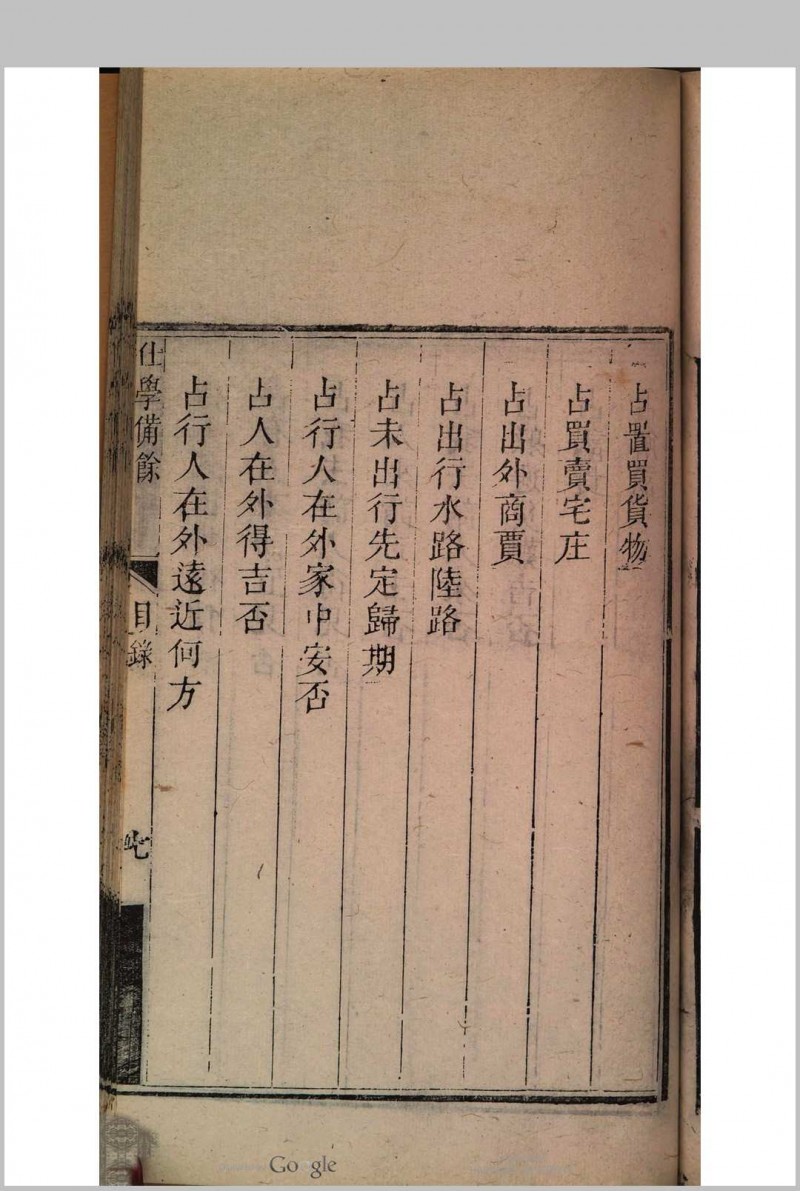 占置買貨物
占買賣宅庄
占出外商賈
占出行水路陸路
占未出行先定歸期
占行人在外家中安否
占人在外得吉否
占行人在外遠近何方
仕學備餘
目錄
七
Google